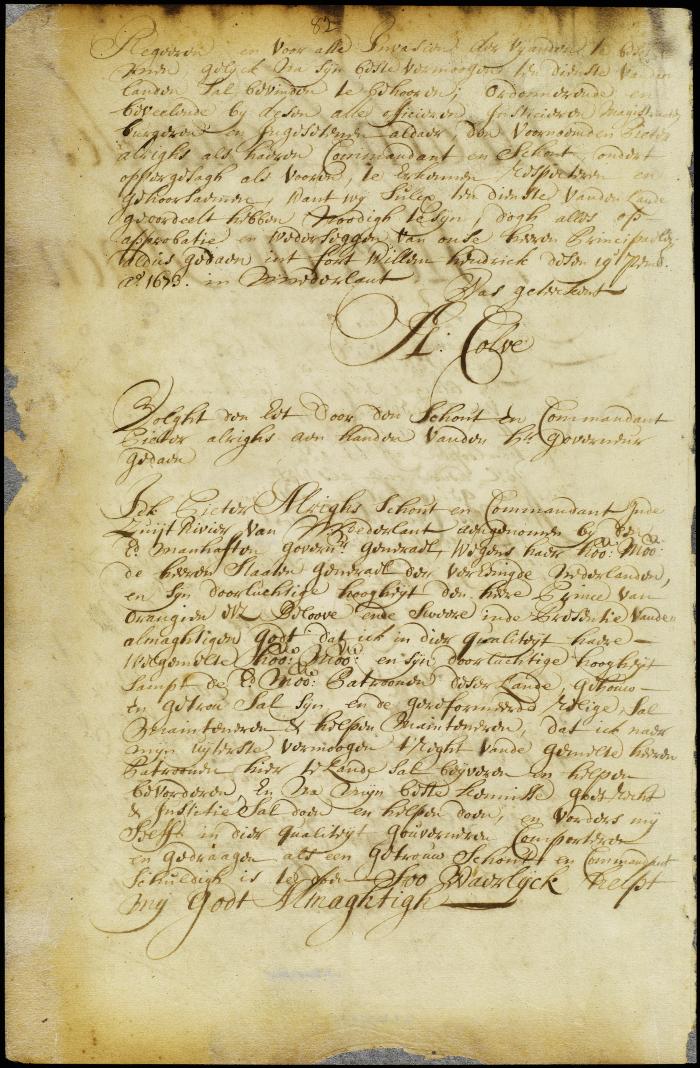 82
Regeeren en voor alle Invasien der vyanden te besc
rmen, gelyck na syn beste vermoogen ten dienste vanden
landen sal bevinden te behooren; ordonnerende en
beveelende by desen alle officieren Justicieren Magistraten
burgeren en Ingesetenen aldaer den Voornoemden Pieter
alrighs als haeren Commandant en Schout, sonder
oppergesagh als vooren, te Erkennen Respecteren en
gehoorsaemen, want wy Sulcx ten dienste vanden Lande
geoordeelt hebben Noodigh te syn, dogh alles op
approbatie en wederseggen van onse heeren Principaelen,
aldus gedaen int fort Willem hendrick desen 19e
Ao 1673. in N. nederlant Was geteekent
A: Colve
Volght den Edt door den Schout en Commandant
Pieter alrighs aen handen vanden hr Governeur
gedaen
Ick Pieter Alrighs Schout en Commandant Inde
Zuijt Rivier van N. Nederlant aengenomen by den
Ed manhaften Governr Generael, wegens haer Hoo: Moo:
de heeren Staaten Generael der vereenigde Nederlanden,
en syn doorluchtige hoogheyt den heere Prince van
orangien etc Beloove ende Sweere inde Presentie vanden
almaghtigen Godt dat ick in dier qualiteyt haere
Welgemelte Hoo: Moo: en syn doorluchtige hoogheyt
Sampt de Ed Moo: Patroonen deser Lande, gehouw
en getrou Sal syn, en de gereformeerde Relige Sal
Mainteneren & helpen Mainteneren, dat ick naer
myn uyterste vermoogen t'Reght vande gemelte heeren
Patroonen hier te Lande Sal beyveren en helpen
bevorderen, En Na myn beste kennisse goet Recht
& Justitie Sal doen en helpen doen, en vorders my
Selfs in dier qualiteyt gouverneren Comporteren
en gedraagen als een getrouw Schout en Commandant
Schuldigh is te doen Soo Waerlyck Helpt
My Godt Almaghtigh